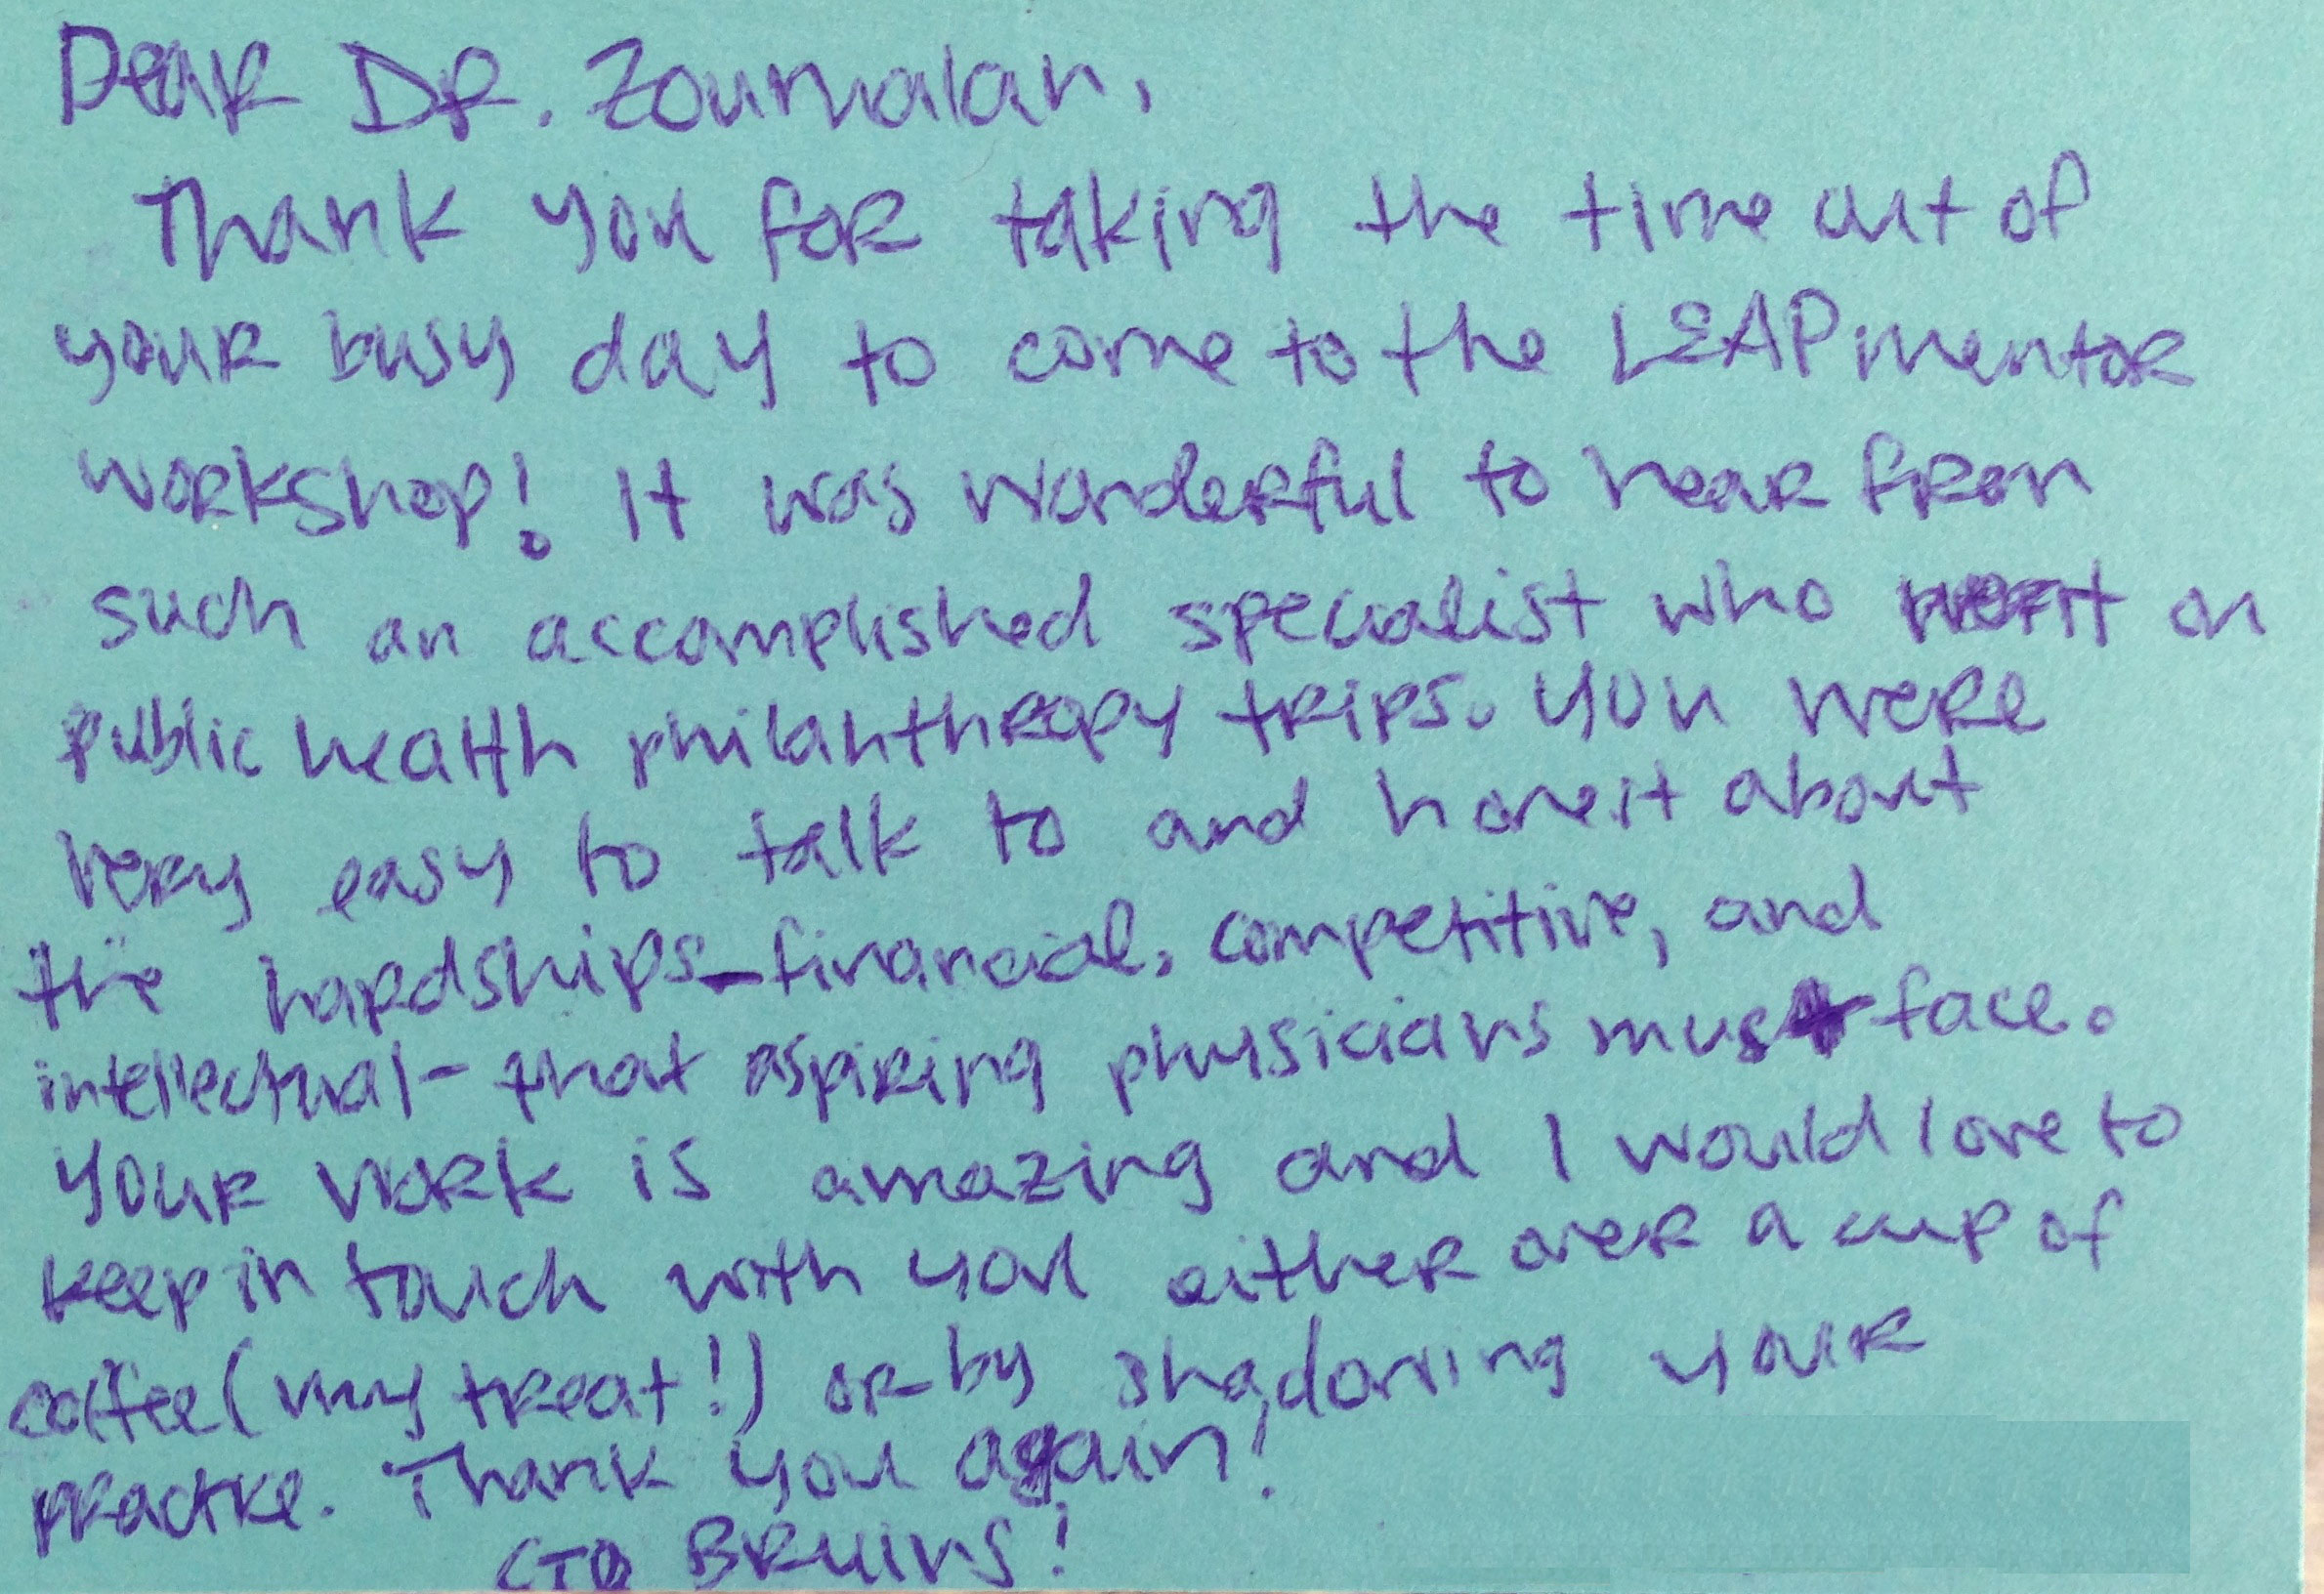 Dear DR. Zoumalan,
Thank you for taking the time out of
your busy day to come to the LEAP mentor
workshop! It was wonderful to hear from
such an accomplished specialist who went on
public health philanthropy trips. You were
very easy to talk to and honest about
the hardships-financial, competitive, and
intellectual- that aspiring physicians must face.
Your work is amazing and I would love to
keep in touch with you either over a cup of
coffee (my treat!) or by shadowing your
practice. Thank you again!
GO BRuins!